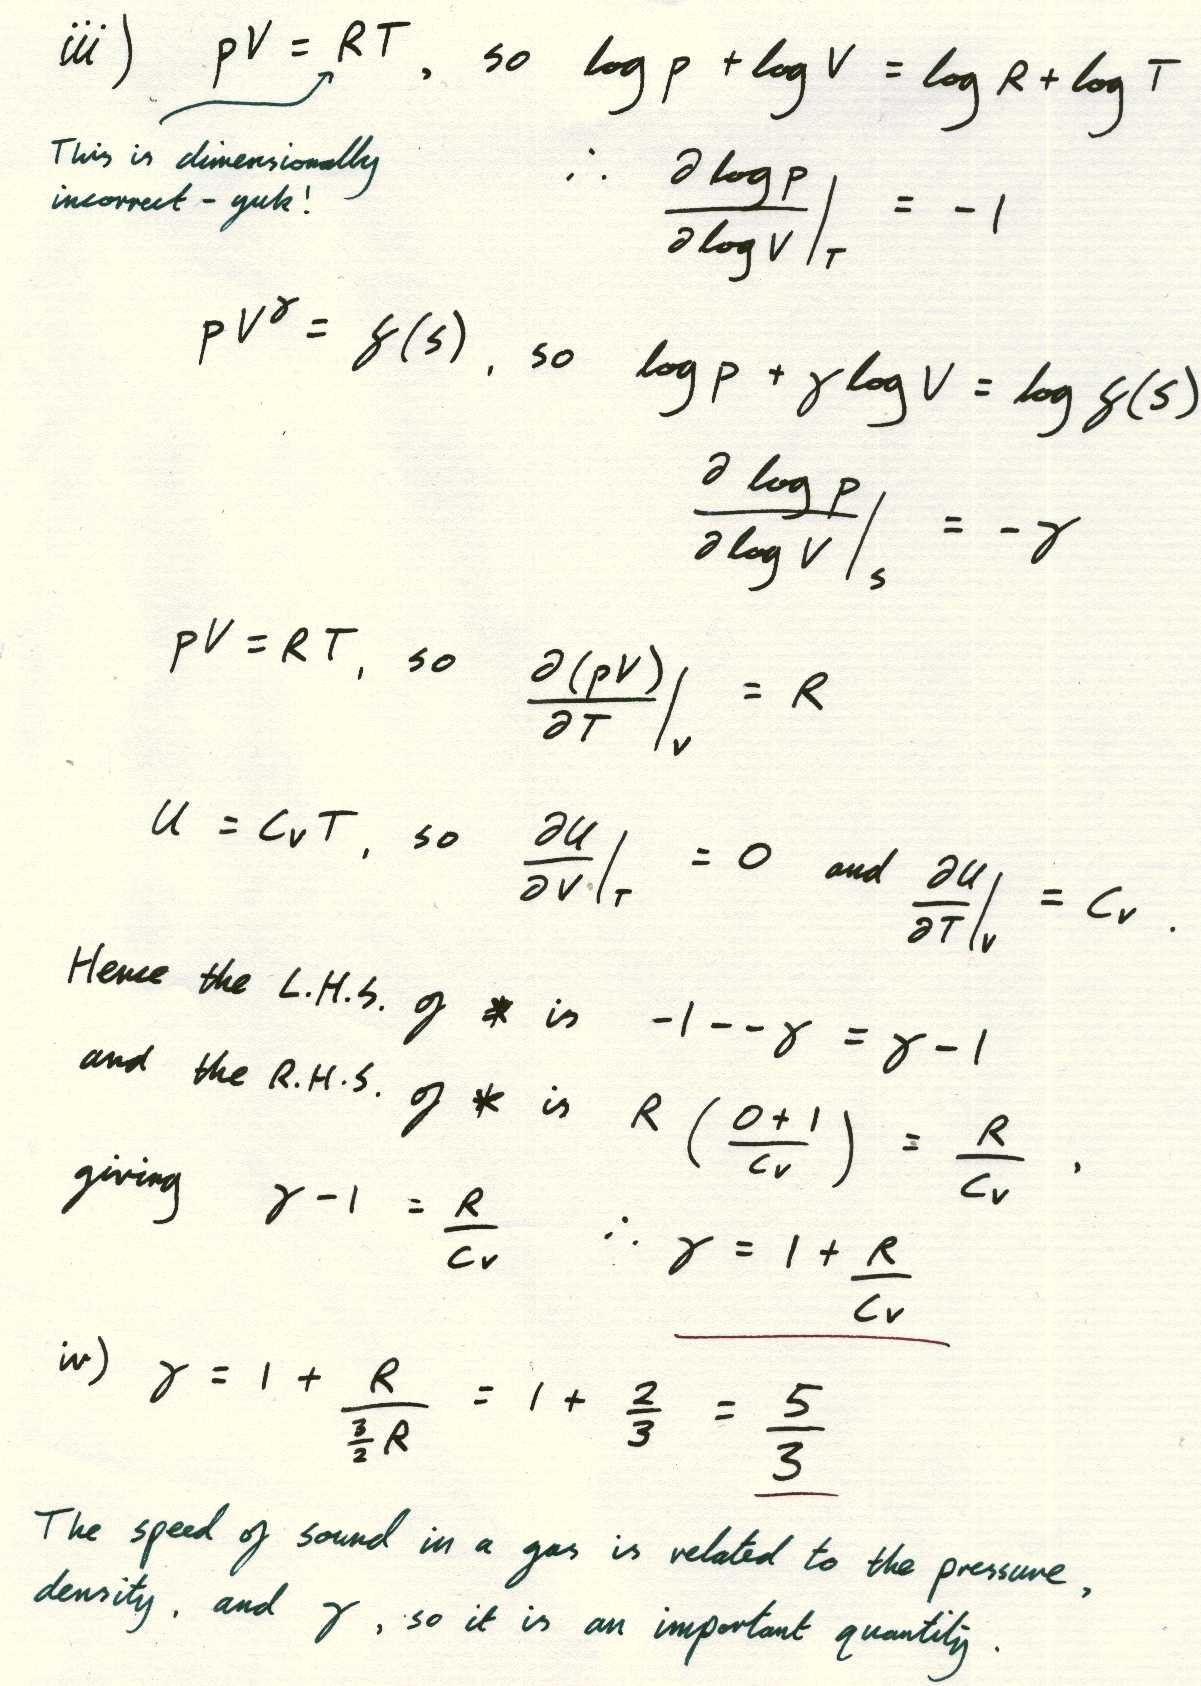 iii) pV = RT, so log p + log V = log R + log T
This is dimensionally
incorrect - yuk!
∴ ∂ log p / ∂ log V |_T = -1
pV^γ = f(s), so log p + γ log V = log f(s)
∂ log p / ∂ log V |_S = -γ
pV = RT, so ∂(pV) / ∂T |_V = R
U = C_V T, so ∂U / ∂V |_T = 0 and ∂U / ∂T |_V = C_V.
Hence the L.H.S. of * is -1 - -γ = γ - 1
and the R.H.S. of * is R ( (0 + 1) / C_V ) = R / C_V,
giving γ - 1 = R / C_V ∴ γ = 1 + R / C_V
iv) γ = 1 + R / (3/2 R) = 1 + 2/3 = 5/3
The speed of sound in a gas is related to the pressure,
density, and γ, so it is an important quantity.